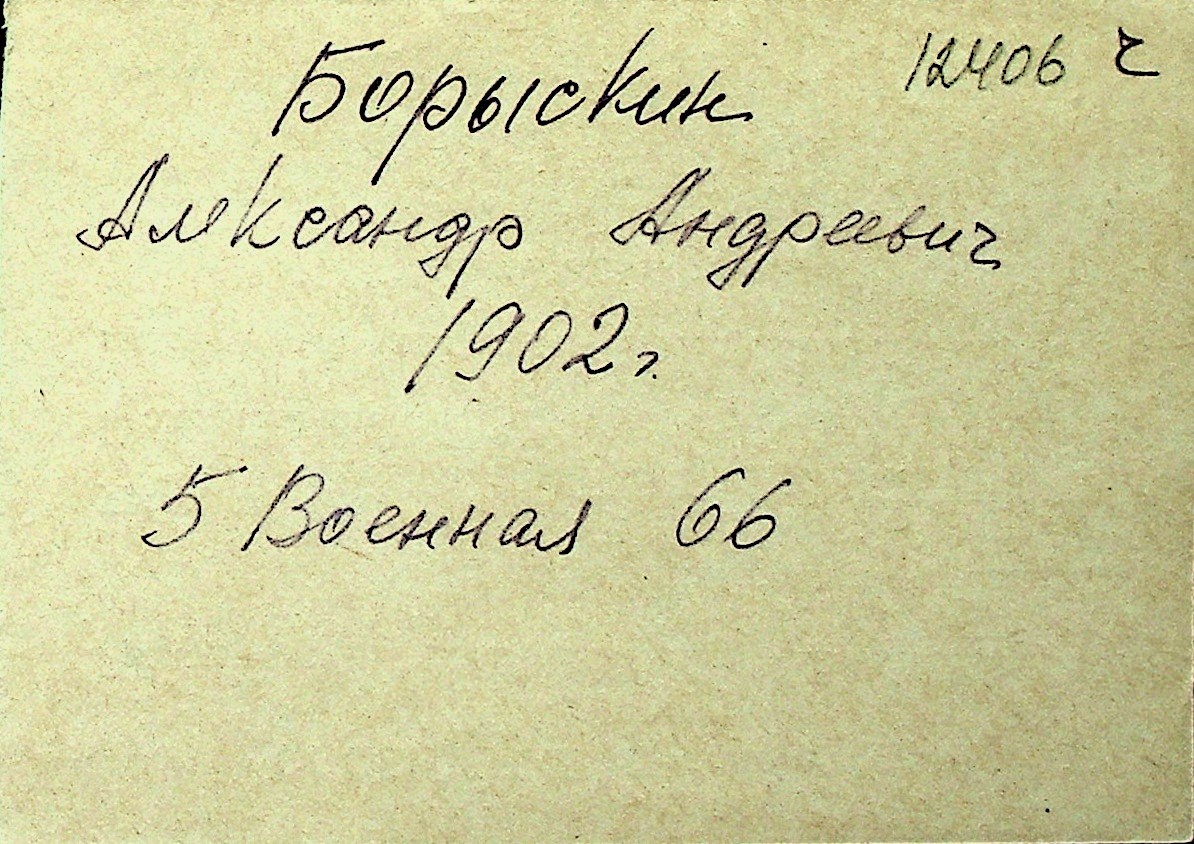 12406 ч
Борыскин
Александр Андреевич
1902 г.
5 Военная 66